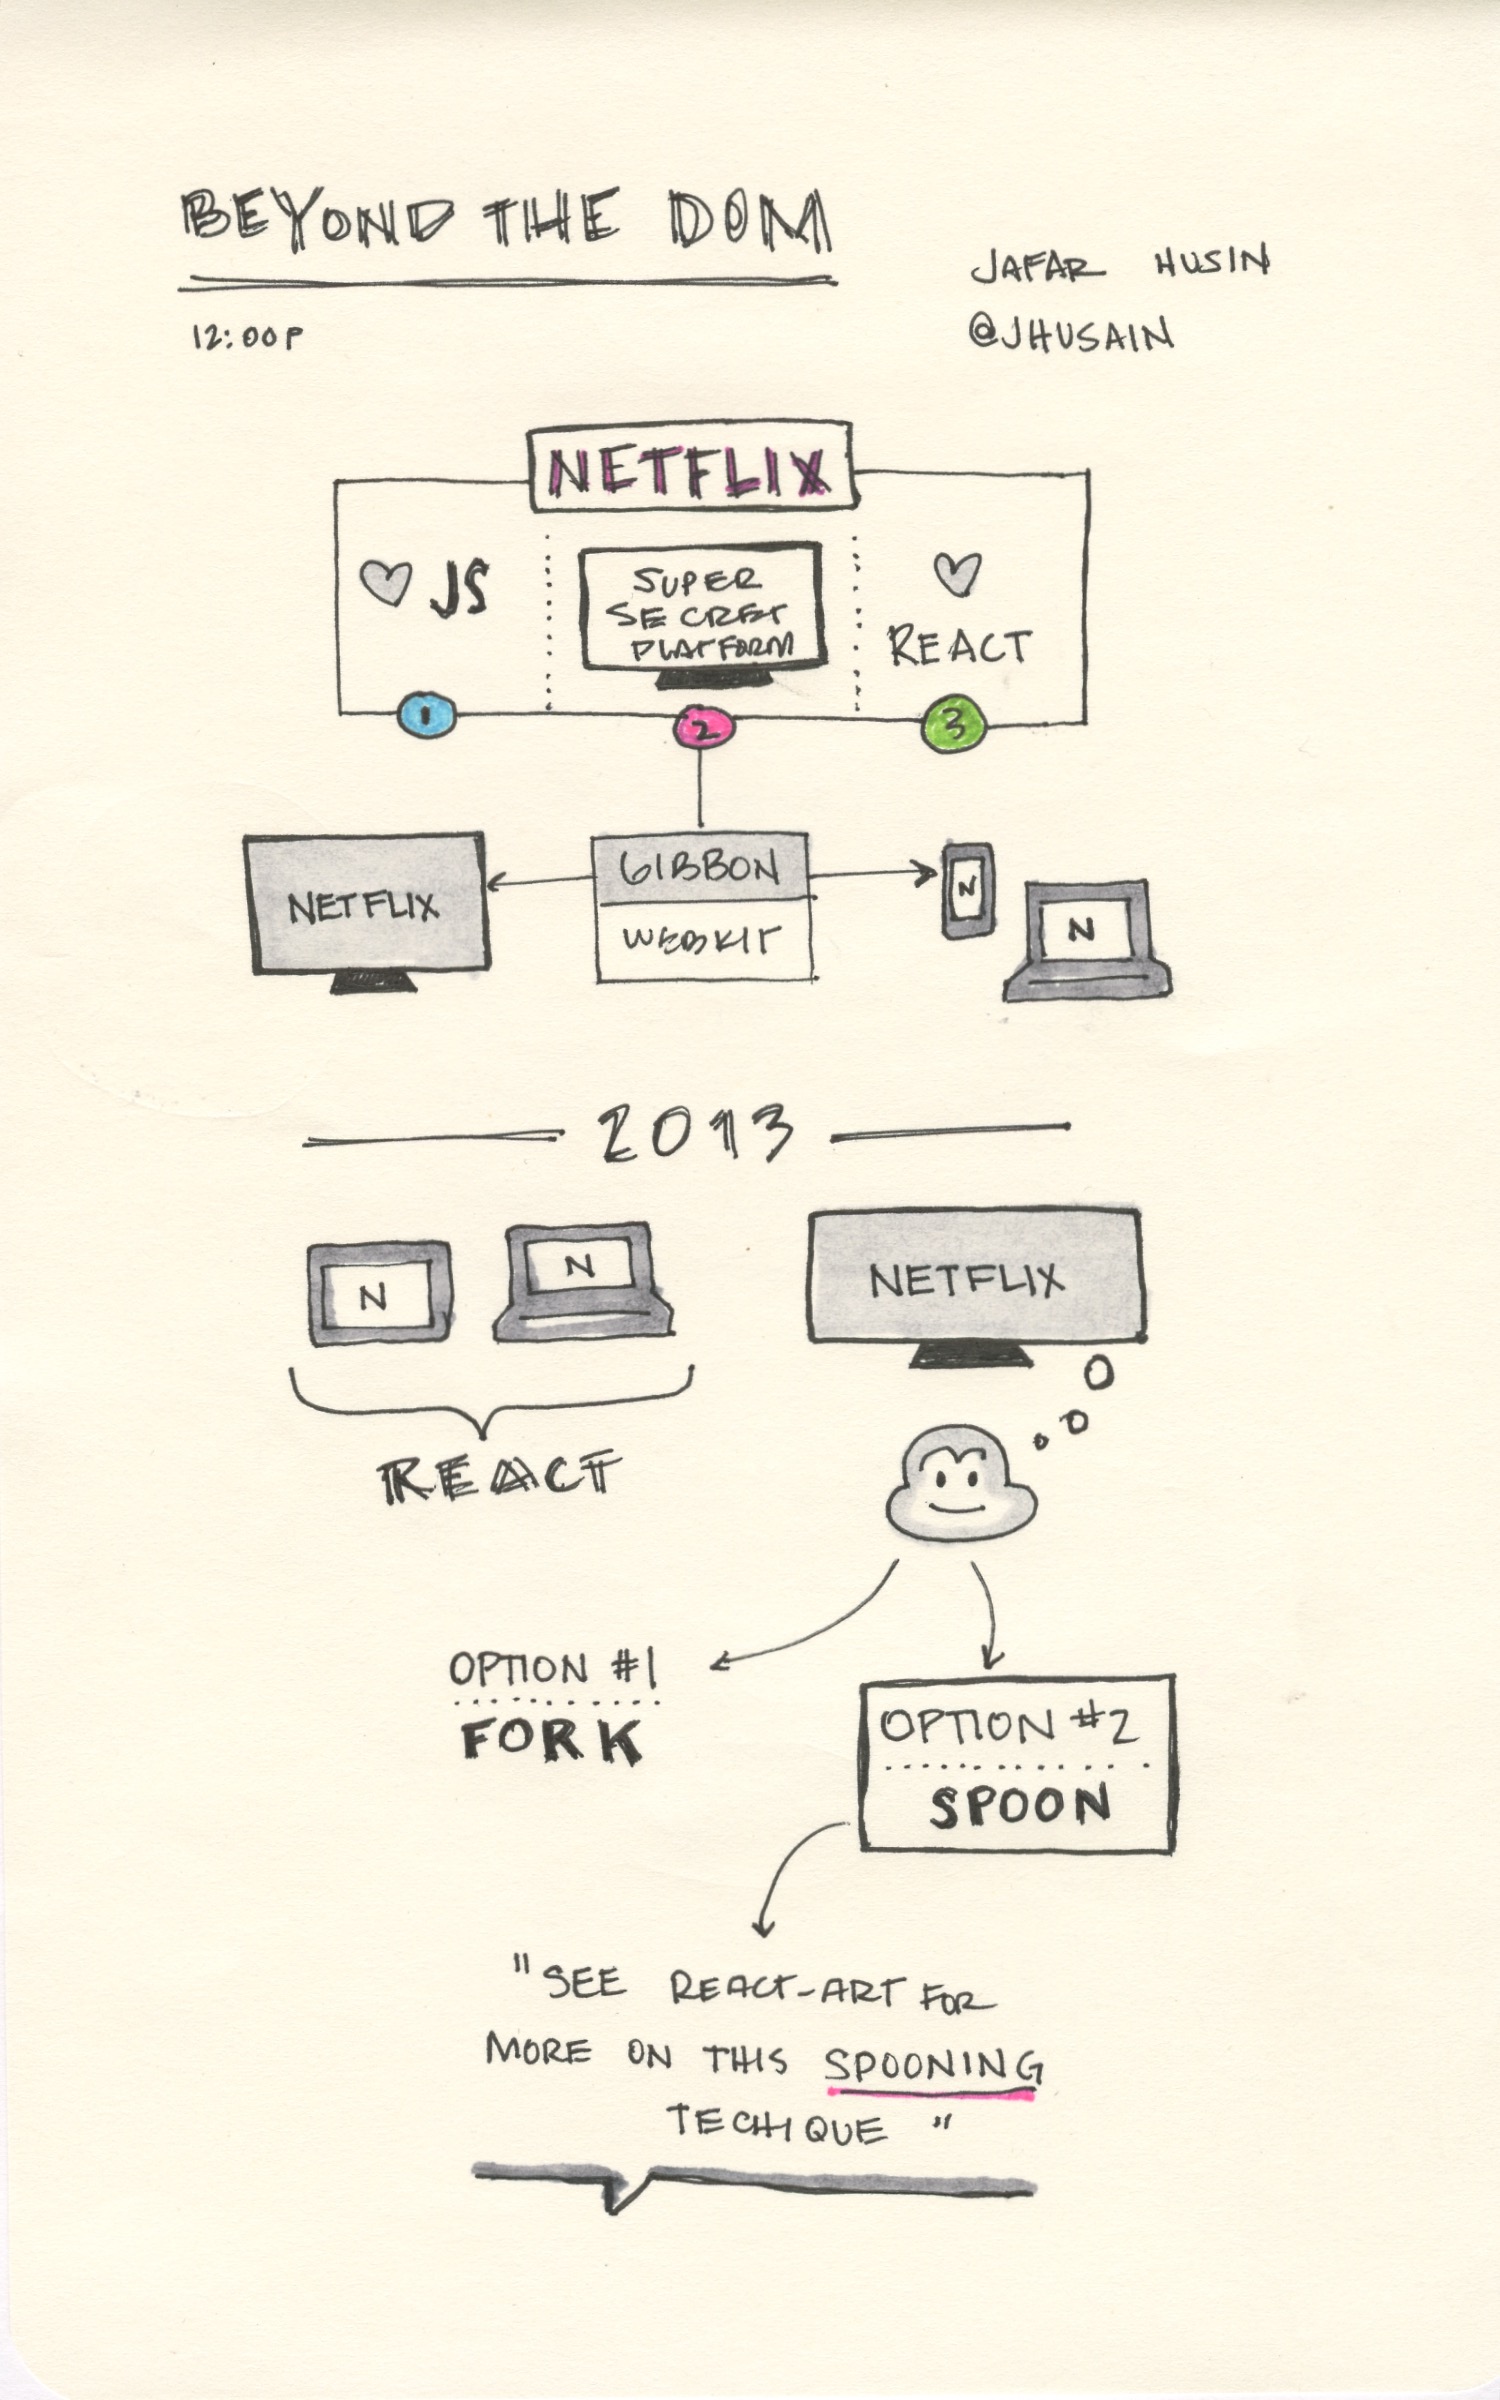 BEYOND THE DOM
12:00P
JAFAR HUSIN
@JHUSAIN
NETFLIX
JS
SUPER
SECRET
PLATFORM
REACT
1
2
3
NETFLIX
GIBBON
WEBKIT
N
N
2013
N
N
NETFLIX
REACT
OPTION #1
FORK
OPTION #2
SPOON
"SEE REACT-ART FOR
MORE ON THIS SPOONING
TECHIQUE"